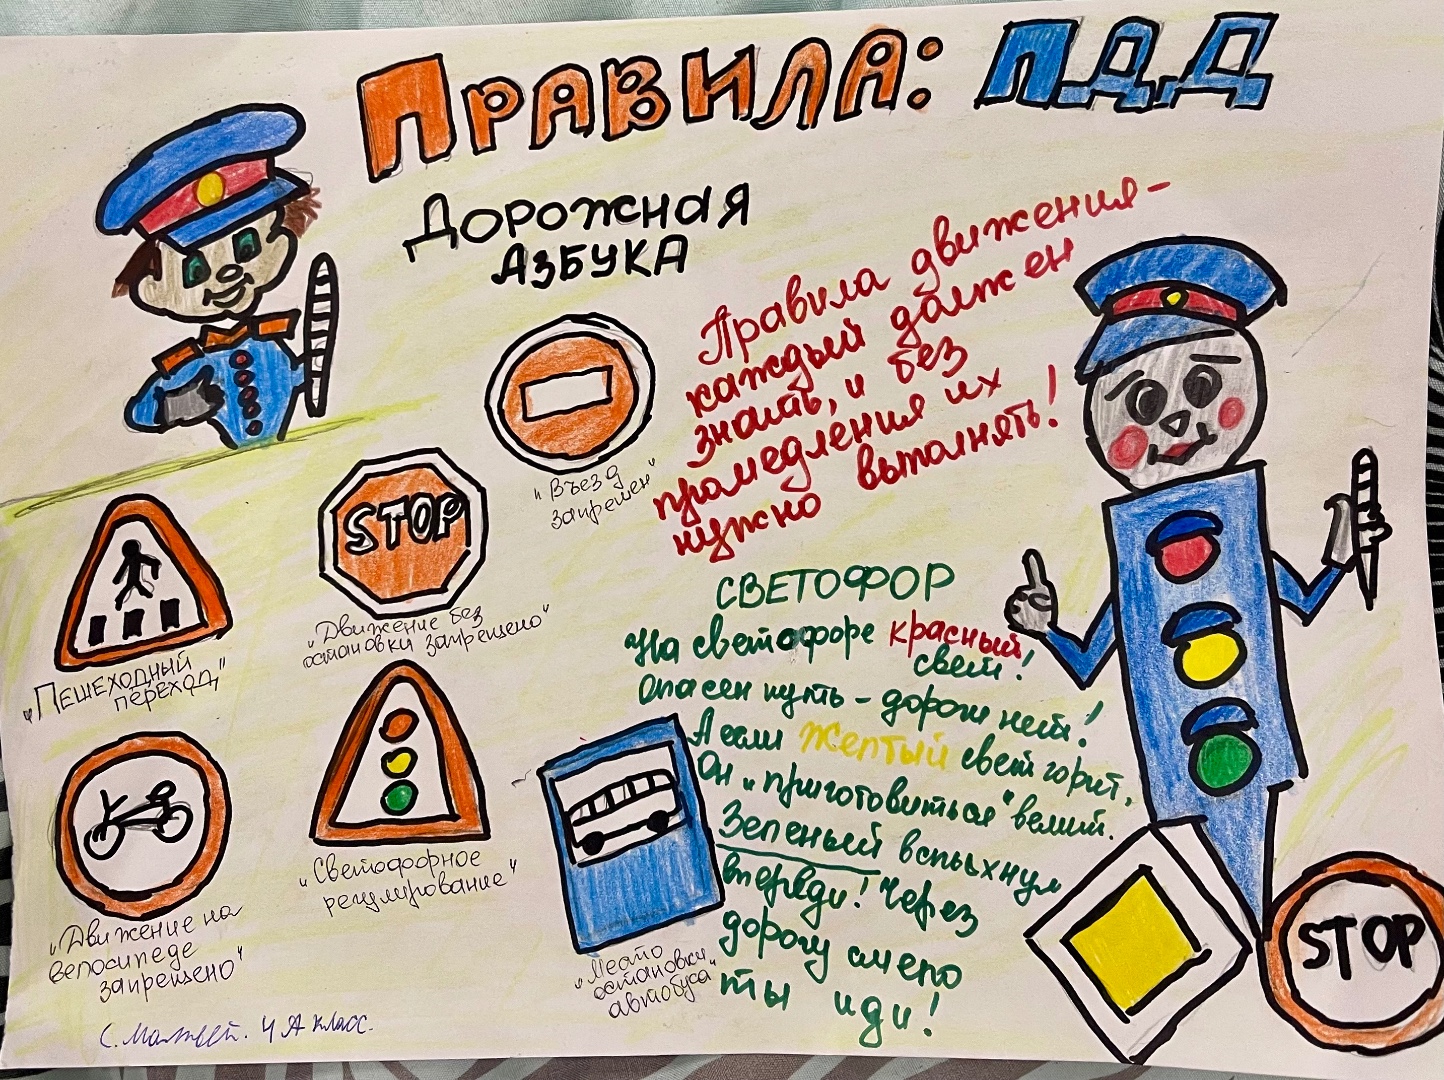 Правила: ПДД
Дорожная
Азбука
Правила движения-
каждый должен
знать, и без
промедления их
нужно выполнять!
"Въезд
запрещен"
STOP
"Движение без
остановки запрещено"
"Пешеходный
переход"
СВЕТОФОР
На светофоре красный
свет!
Опасен путь - дороги нет!
А если желтый свет горит,
Он "приготовиться" велит.
Зеленый вспыхнул
впереди! Через
дорогу смело
ты иди!
"Светофорное
регулирование"
"Движение на
велосипеде
запрещено"
"Место
остановки
автобуса"
STOP
С. Матвей. 4 А класс.